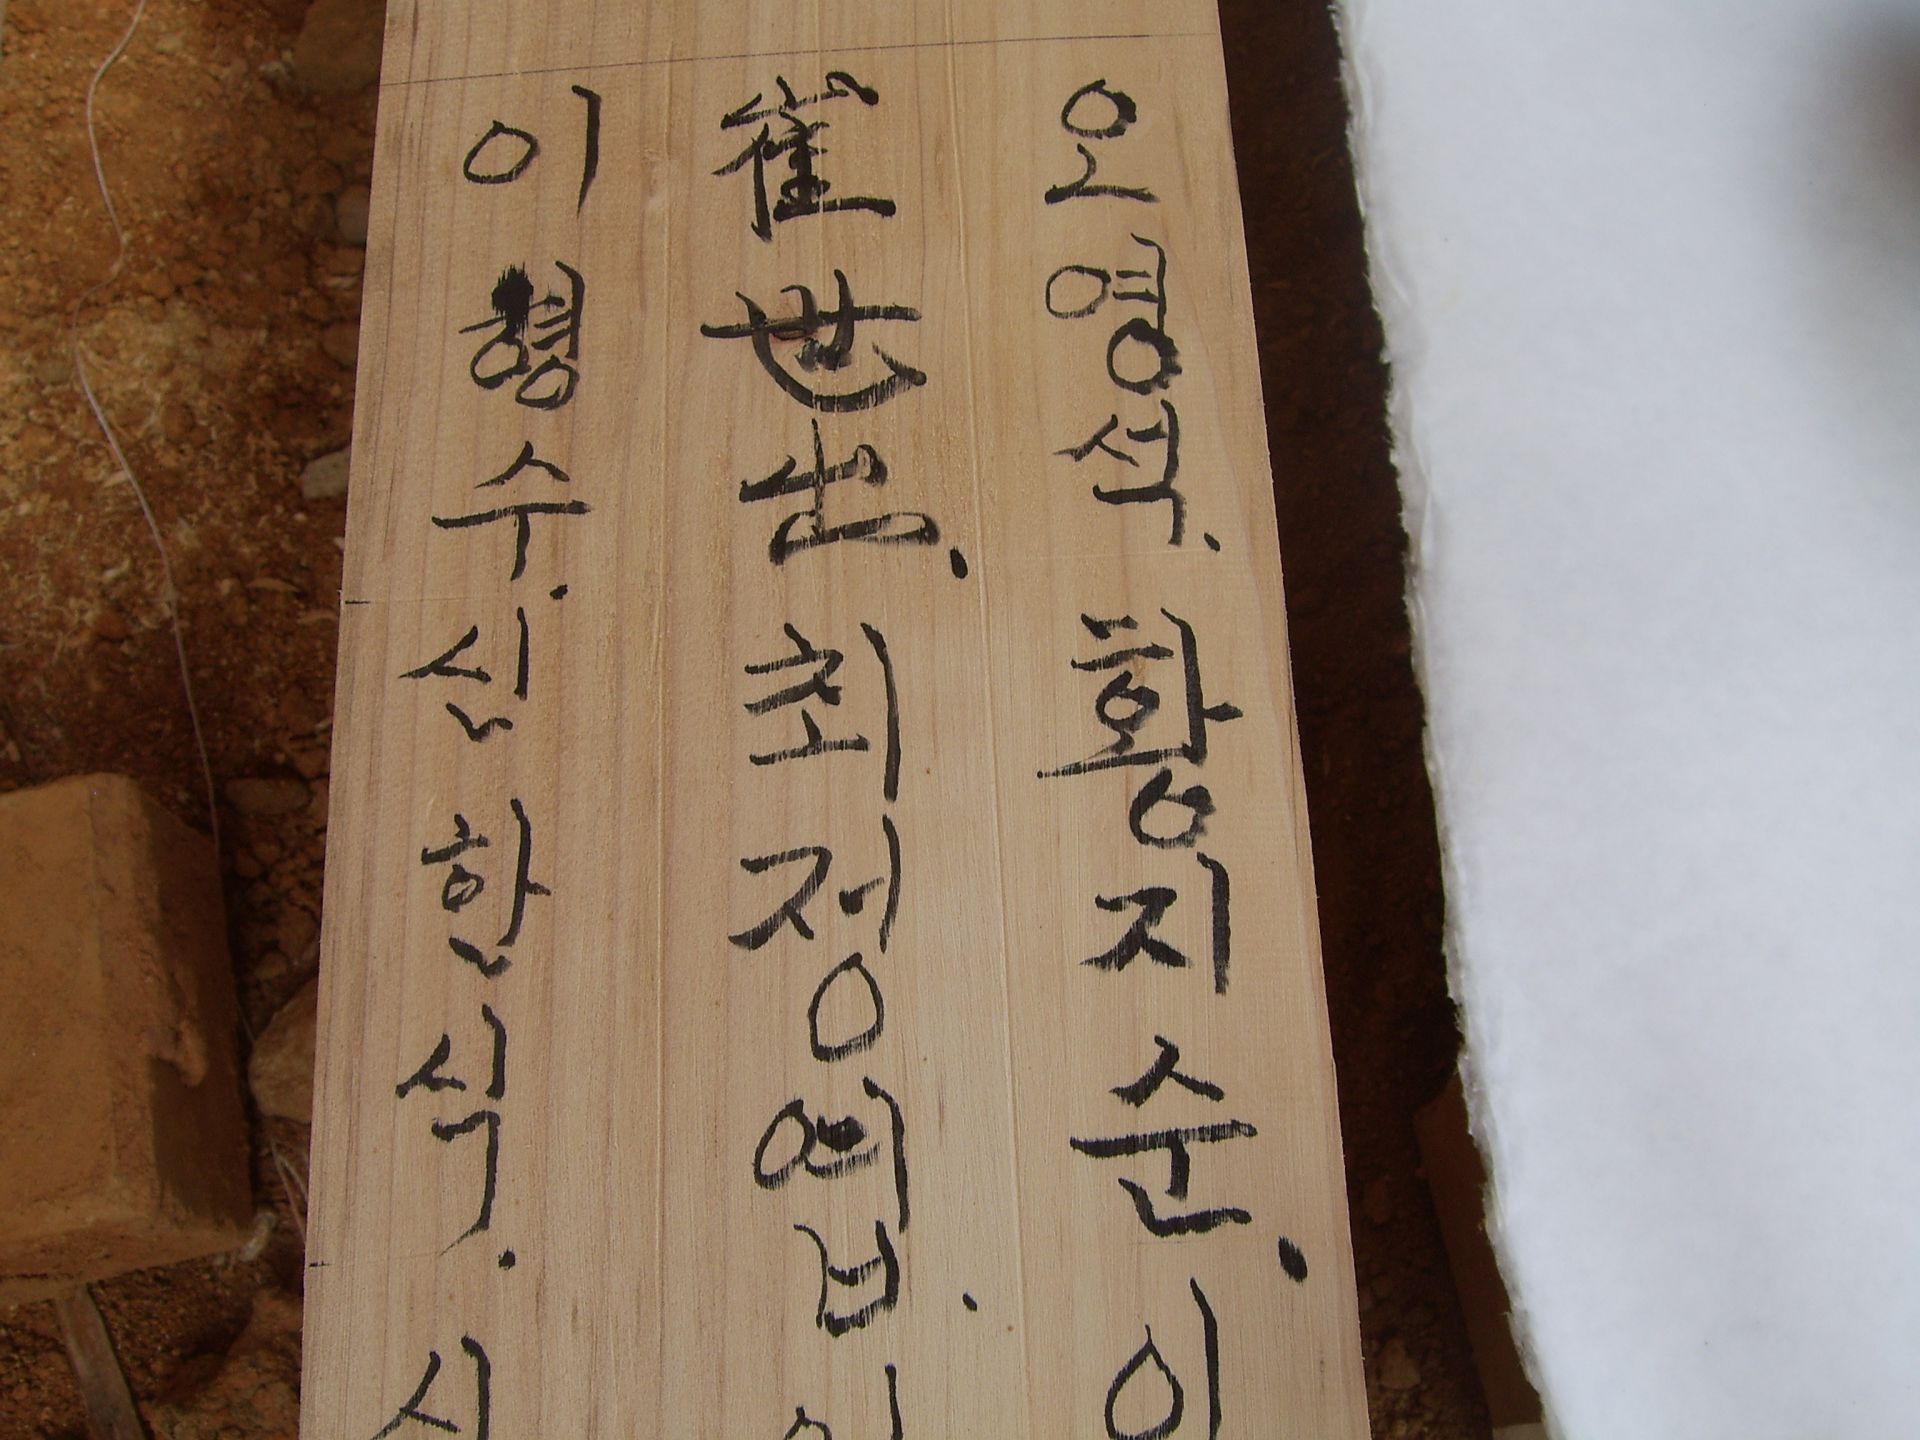 오영석. 황지순. 이
崔世出. 최정예님.
이형수. 신한식.